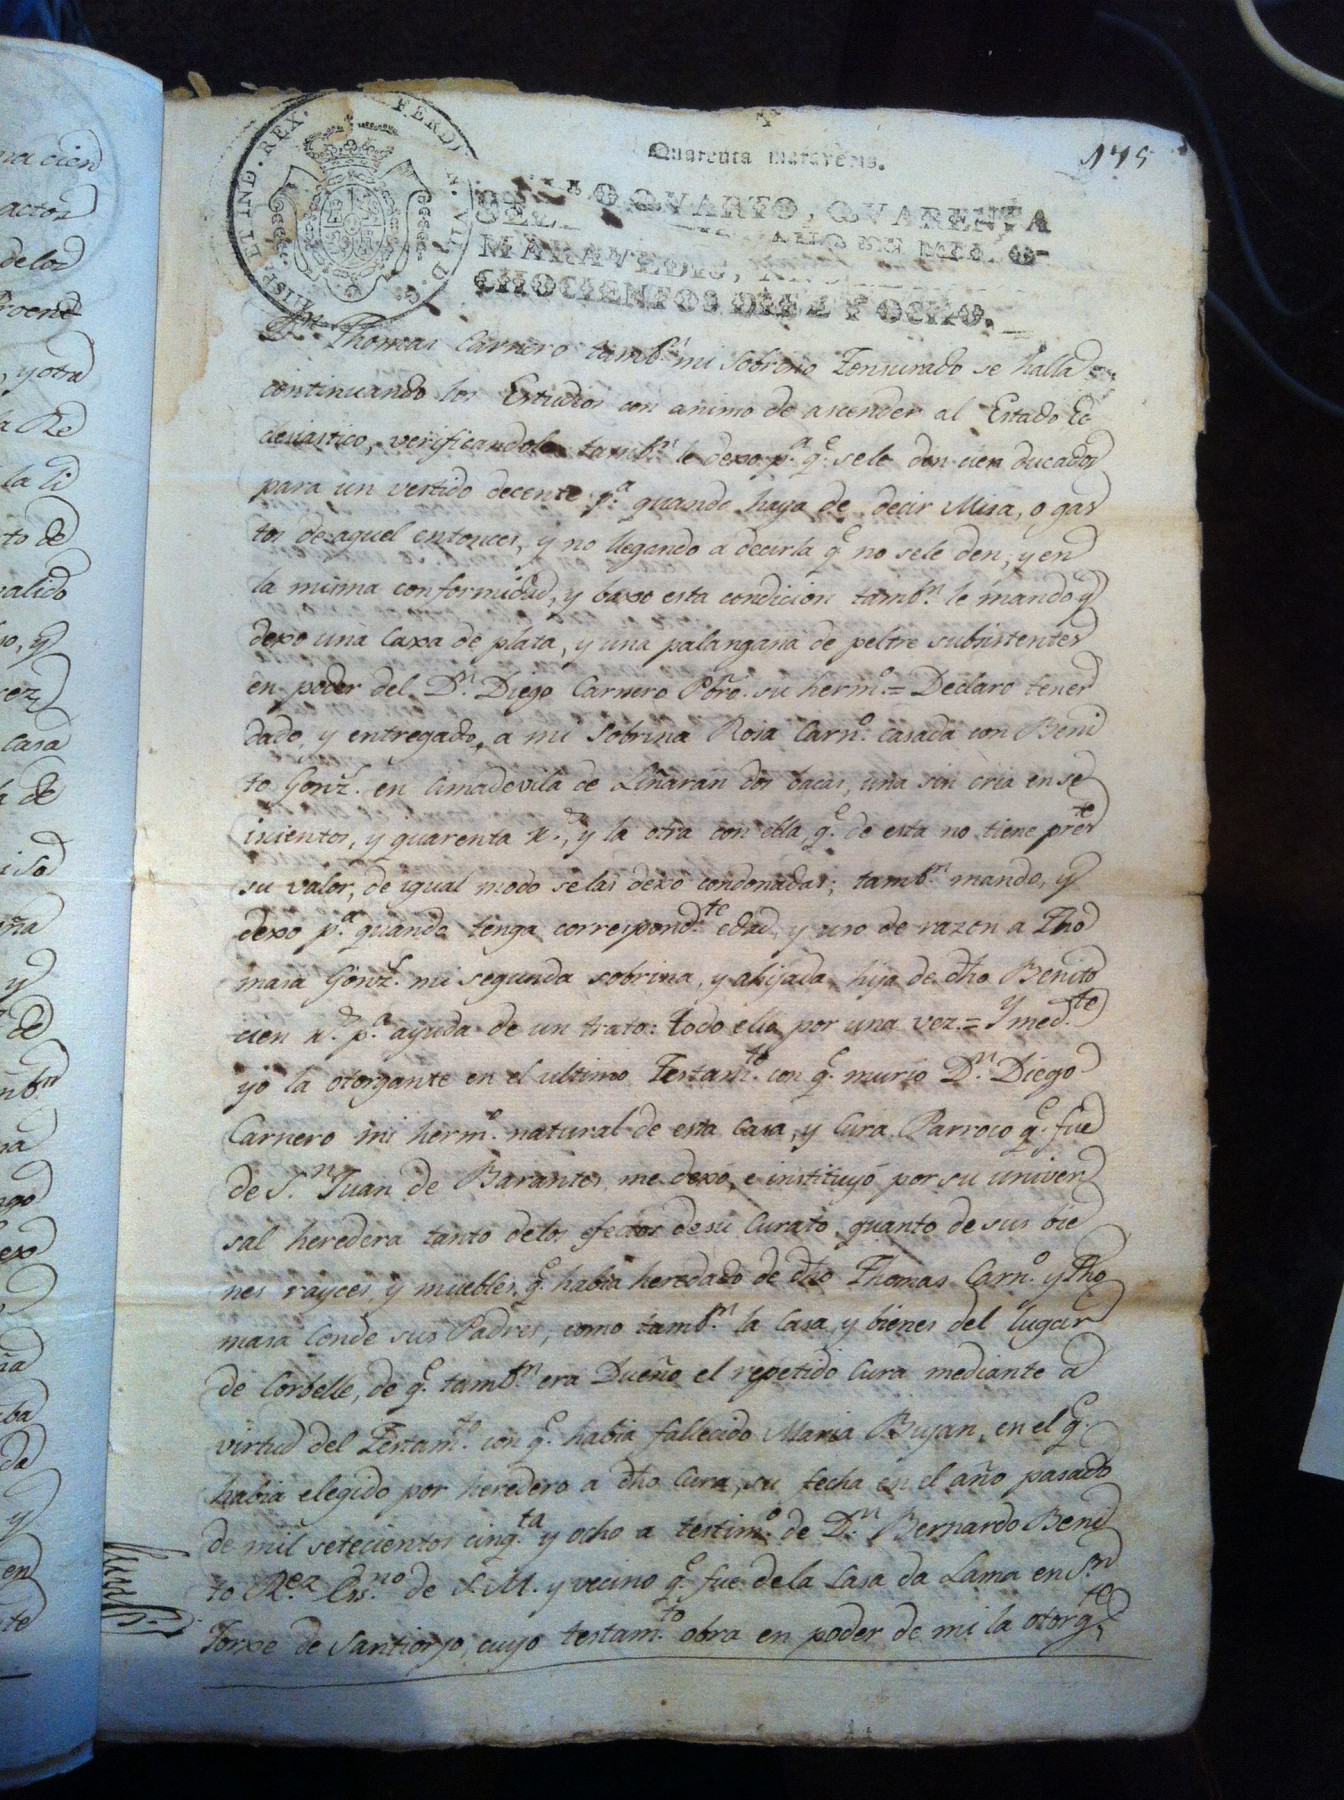 175
Quarenta maravedis.
HISP. ET IND. REX. FERDIN. VII. D. G.
SELLO QVARTO, QVARENTA
MARAVEDIS, AÑO DE MIL O-
CHOCIENTOS DIEZ Y OCHO.
Dn. Thomas Carnero tambn. mi sobrino Tensurado se halla
continuando los Estudios con animo de ascender al Estado Ec
clesiastico, verificandolo tambn. le dexo pa. qe. sele den cien ducados
para un vestido decente pa. quando haya de decir Misa, o gas
tos de aquel entonces, y no llegando a decirla qe. no sele den; y en
la misma conformidad, y baxo esta condicion tambn. le mando y
dexo una Caxa de plata, y una palangana de peltre subsistentes
en poder del Dn. Diego Carnero Pbro. su hermo. = Declaro tener
dado, y entregado, a mi Sobrina Rosa Carno. casada con Beni
to Gonz. en Cimadevila de Liñaran dos bacas, una sin cria en se
iscientos, y quarenta rs., y la otra con ella, qe. de esta no tiene preste
su valor, de igual modo selas dexo condonadas; tambn. mando, y
dexo pa. quando tenga correspondte. edad, y uso de razon a Tho
masa Gonz. mi segunda sobrina, y ahijada, hija de dho Benito
cien rs. pa. ayuda de un trato: todo ello por una vez. = Y medte.
yo la otorgante en el ultimo Testamto. con qe. murio Dn. Diego
Carnero mi hermo. natural de esta Casa, y Cura Parroco qe. fue
de Sn. Juan de Barantes, me dexó, e instituyó por su univer
sal heredera tanto delos efectos desu Curato, quanto de sus bie
nes rayces, y muebles, qe. habia heredado de dho Thomas Carno. y Tho
masa Conde sus Padres, como tambn. la Casa, y bienes del lugar
de Corbelle, de qe. tambn. era Dueño el repetido Cura mediante a
virtud del Testamto. con qe. habia fallecido Maria Bujan, en el qe.
habia elegido por heredero a dho Cura, su fecha en el año pasado
de mil setecientos cinqta. y ocho a testimo. de Dn. Bernardo Beni
to Rea Esno. de S. M. y vecino qe. fue dela Casa da Lama en Sn.
Jorxe de Santiorjo, cuyo testamto. obra en poder de mi la otorgte.